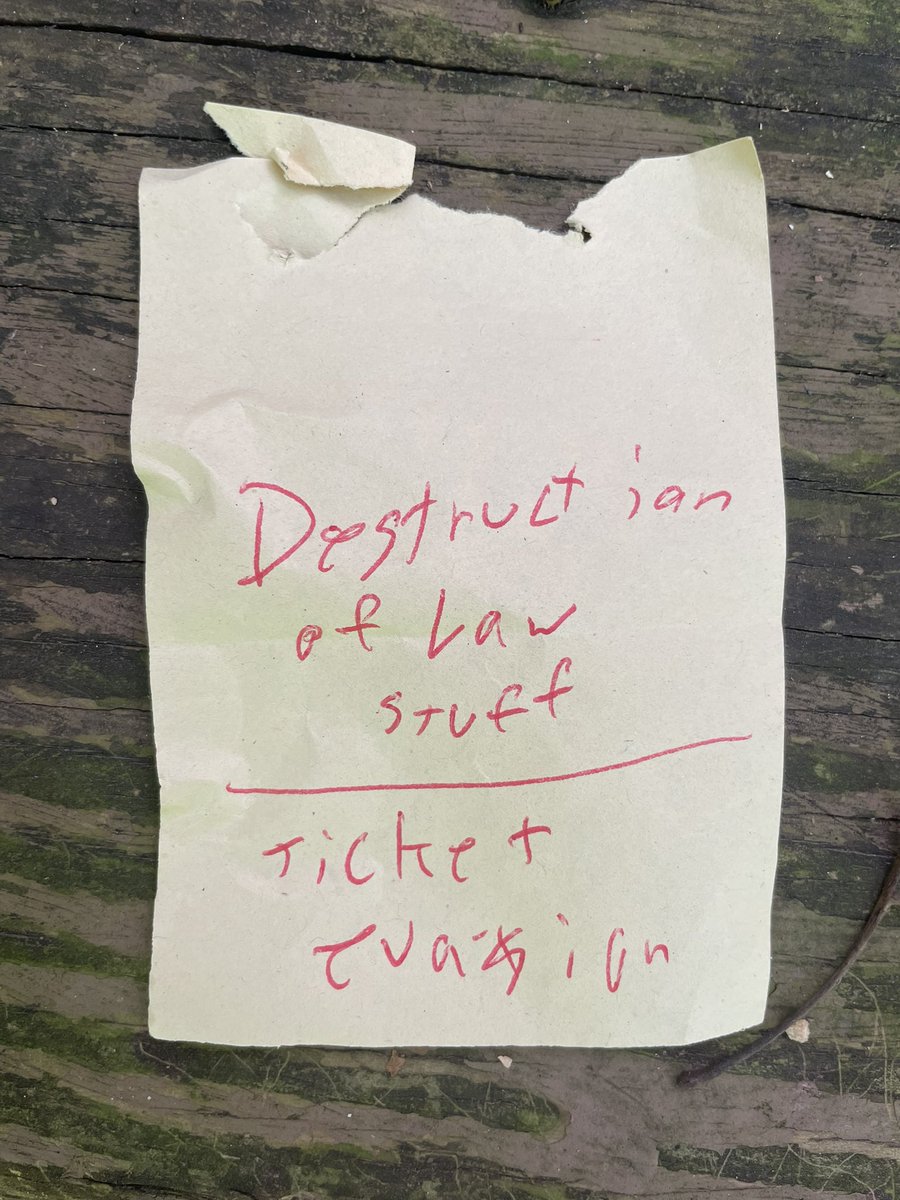 Destruction
of Law
stuff
Ticket
evasion